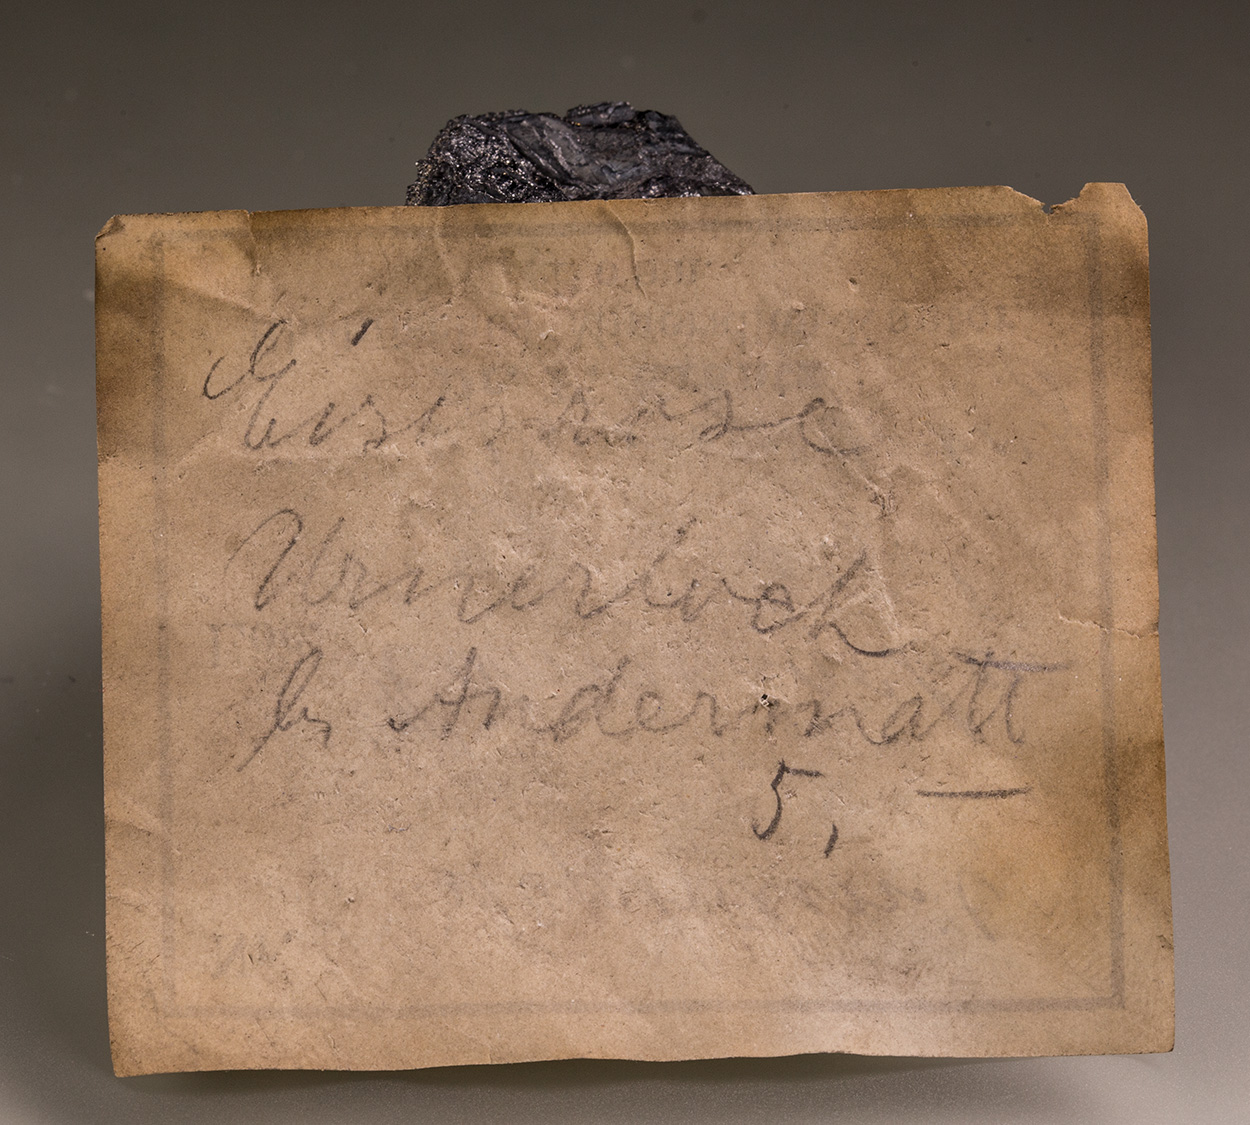 Eisenrose
Urnerloch
b. Andermatt
5, —